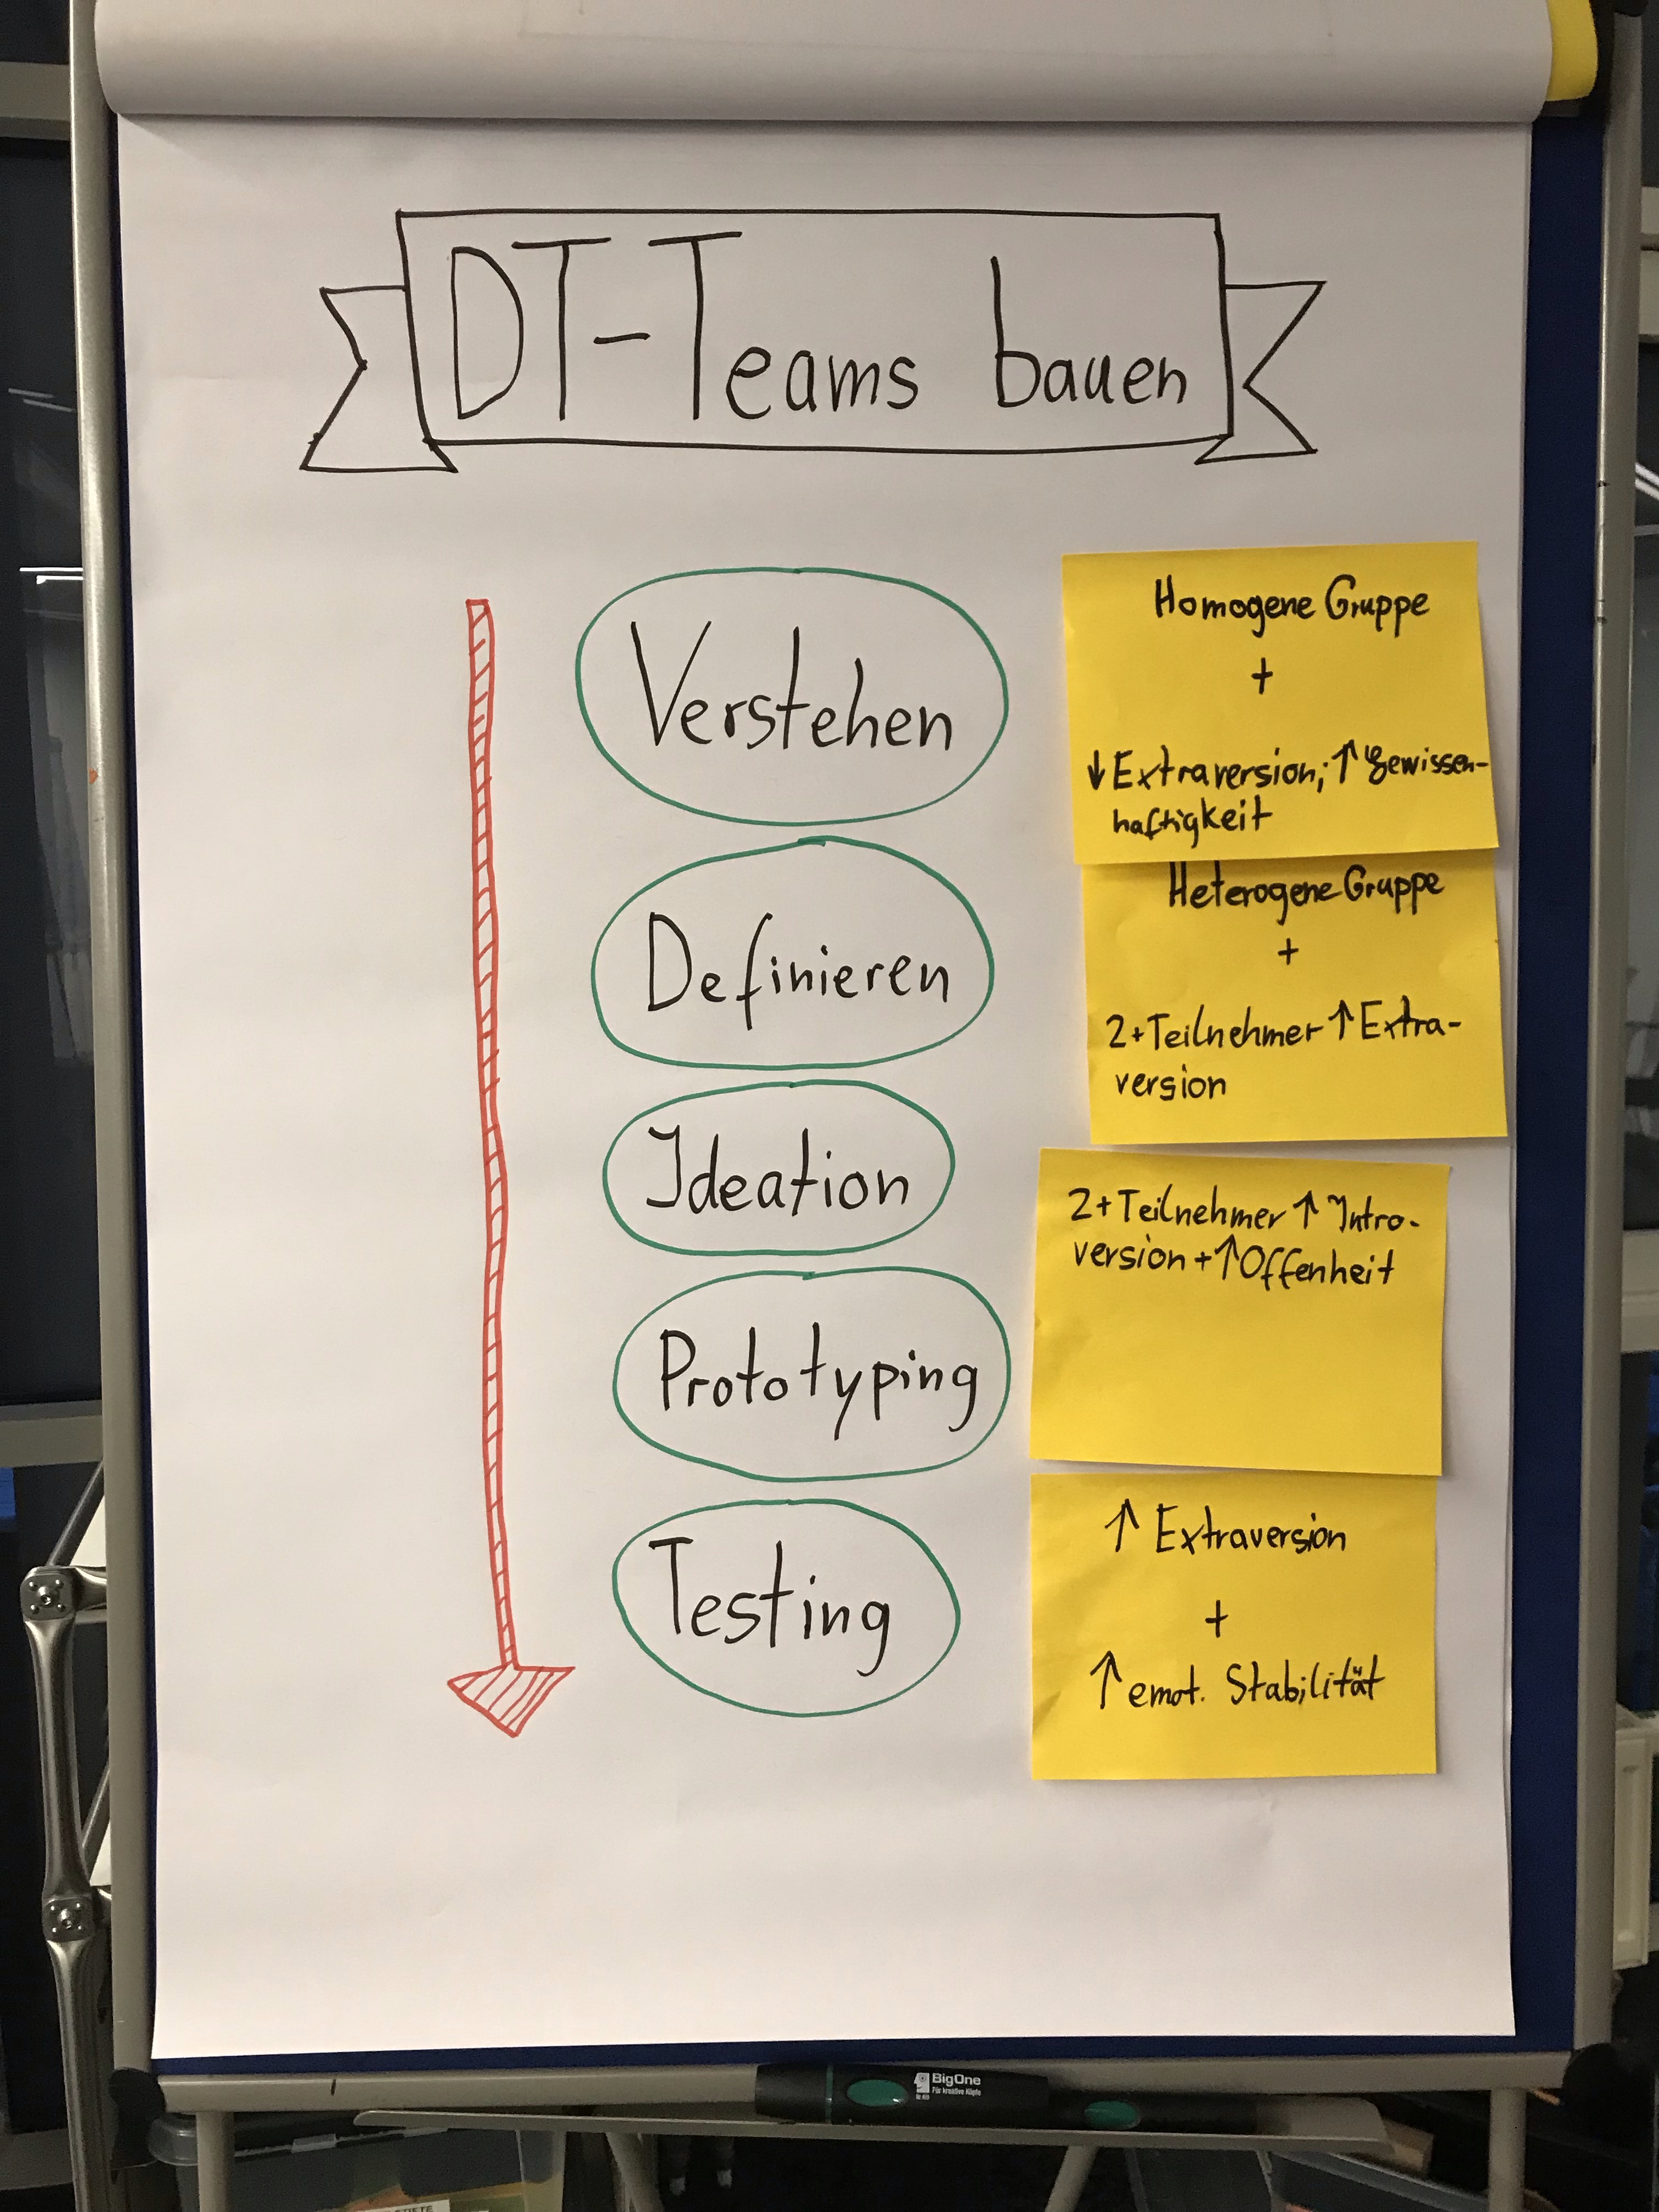 DT-Teams bauen
Verstehen
Homogene Gruppe
+
↓ Extraversion; ↑ Gewissen-
haftigkeit
Definieren
Heterogene Gruppe
+
2+ Teilnehmer ↑ Extra-
version
Ideation
2+ Teilnehmer ↑ Intro-
version + ↑ Offenheit
Prototyping
Testing
↑ Extraversion
+
↑ emot. Stabilität
BigOne
Für kreative Köpfe